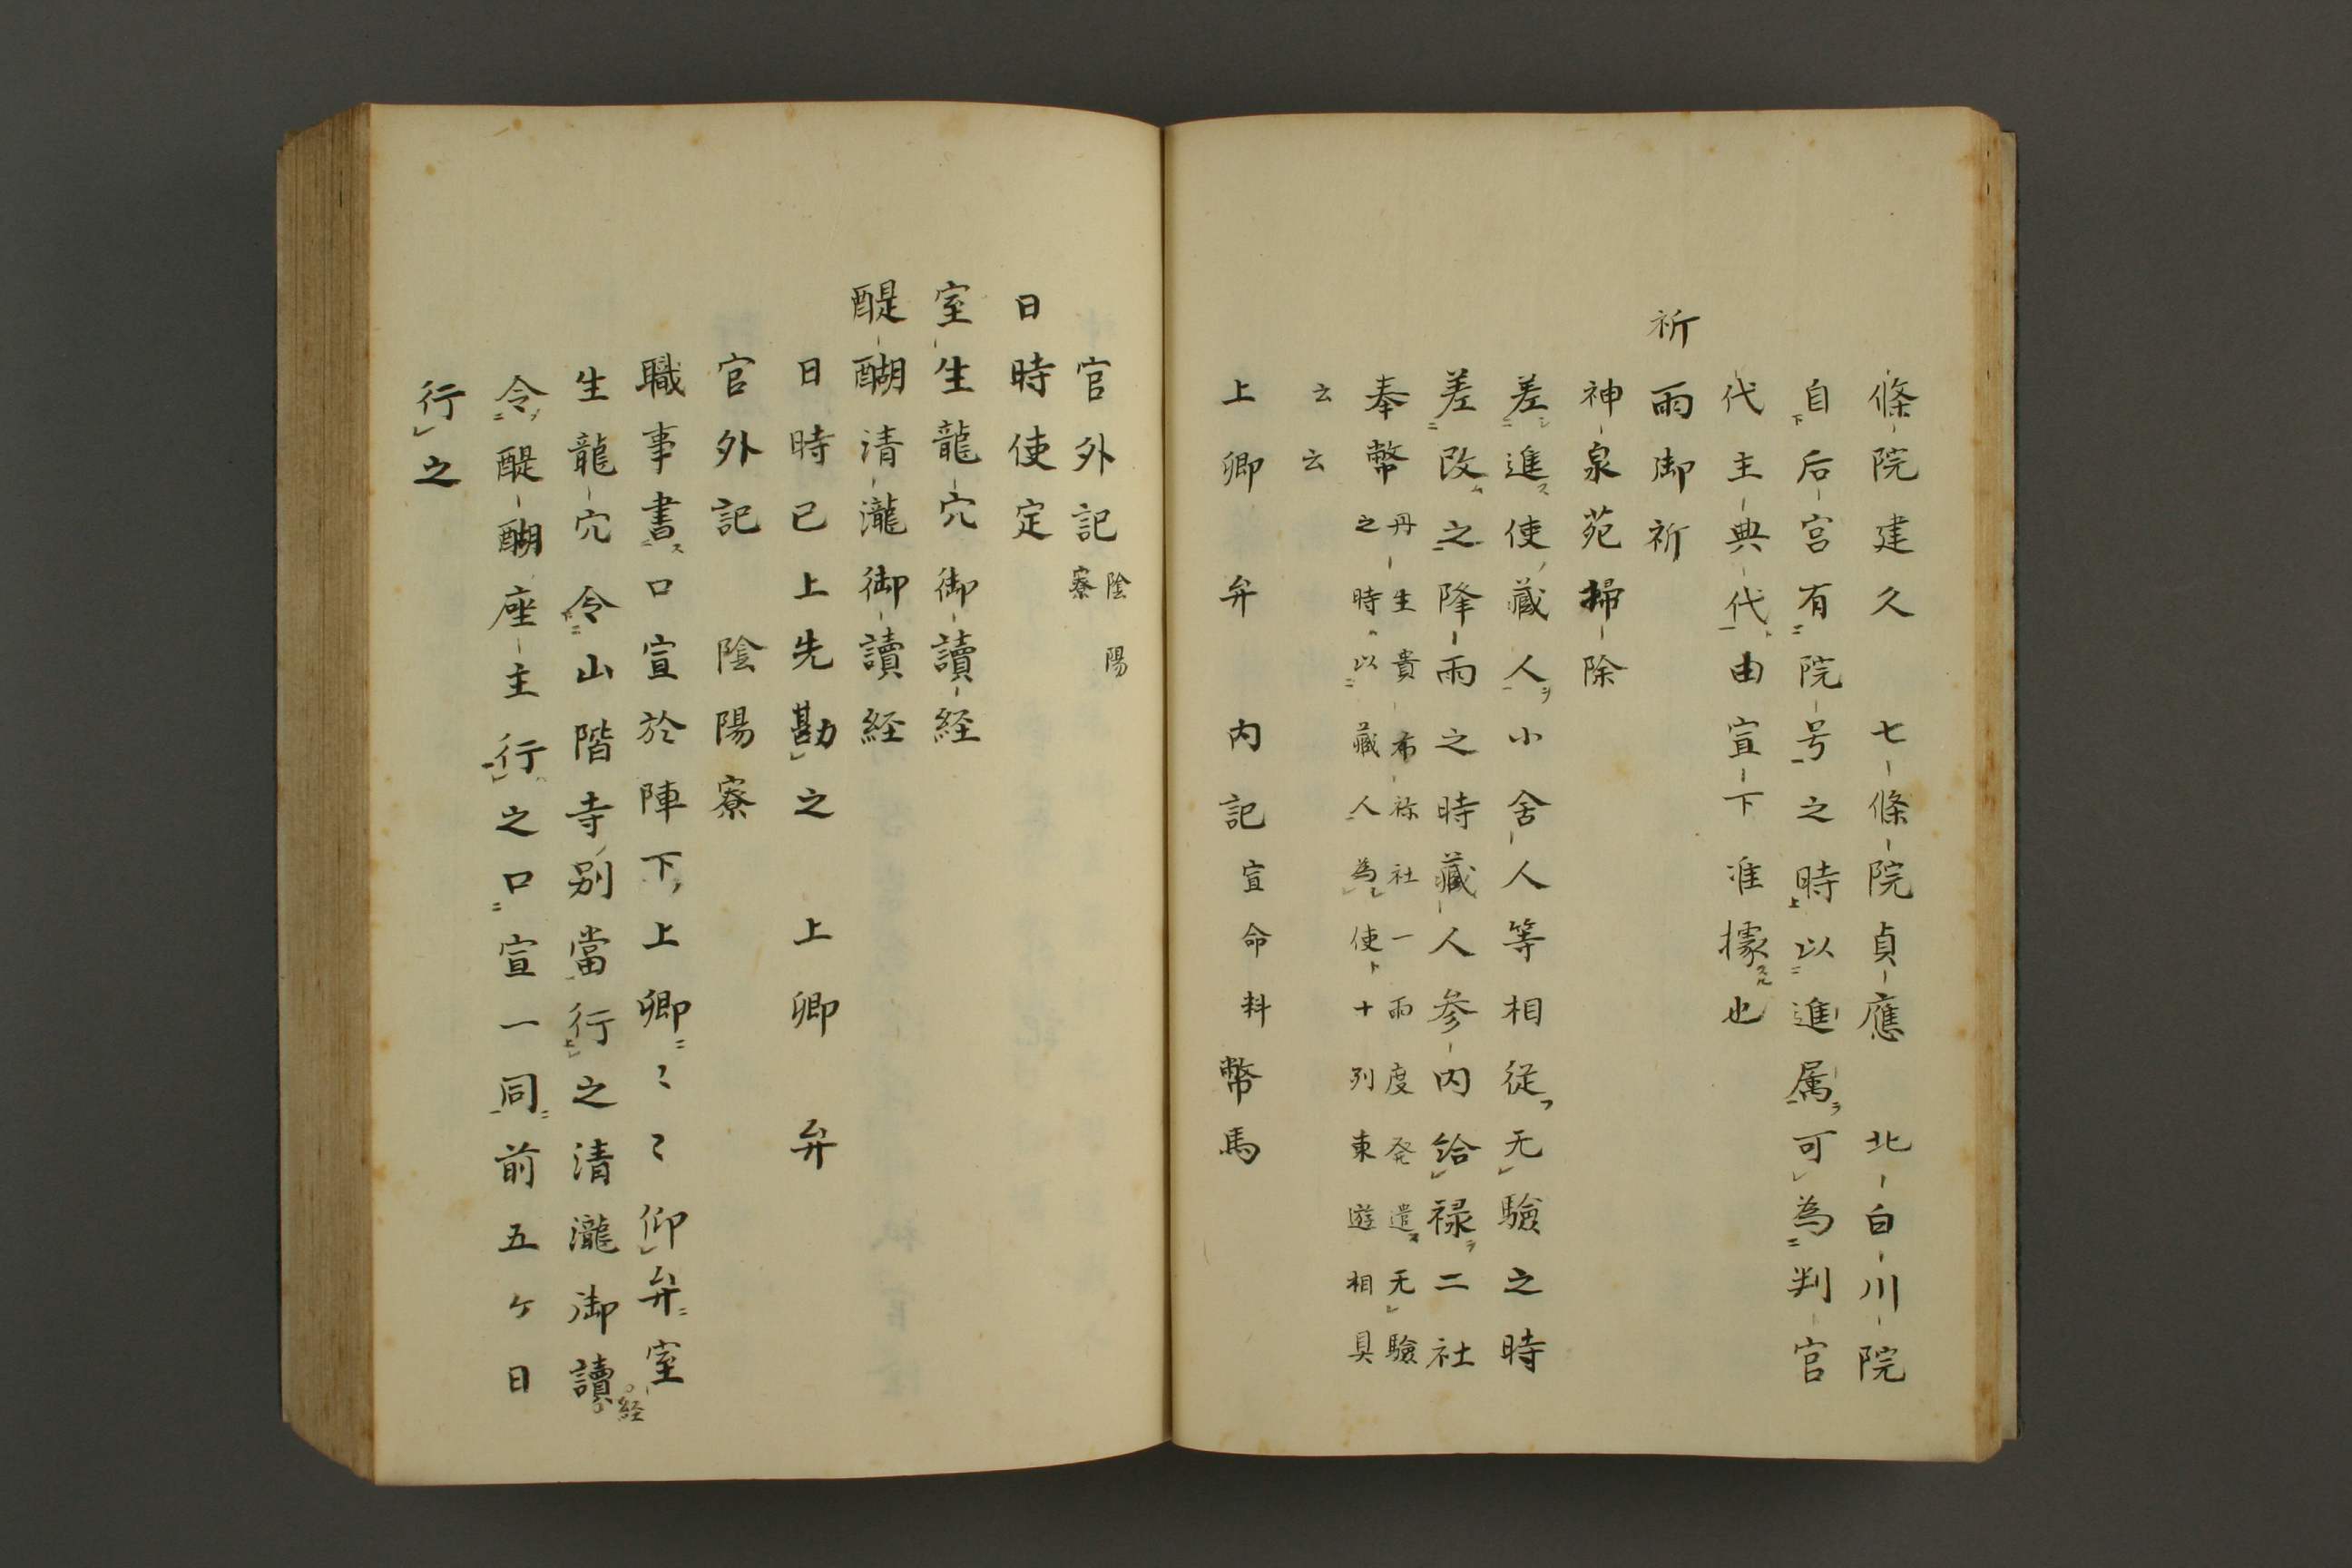 條院建久　七條院貞應　北白川院
自后宮有院号之時以進属可為判官
代主典代由宣下准據也
祈雨御祈
神泉苑掃除
差進使藏人小舎人等相従无驗之時
差改之降雨之時藏人参内給禄二社
奉幣丹生貴布祢社一両度発遣无驗
之時以藏人為使十列東遊相具
云云
上卿　弁　内記宣命料　幣馬
官外記陰陽
寮
日時使定
室生龍穴御讀経
醍醐清瀧御讀経
日時已上先勘之　上卿　弁
官外記　陰陽寮
職事書口宣於陣下上卿〻〻仰弁室
生龍穴令山階寺別當行之清瀧御讀経
令醍醐座主行之口宣一同前五ケ日
行之